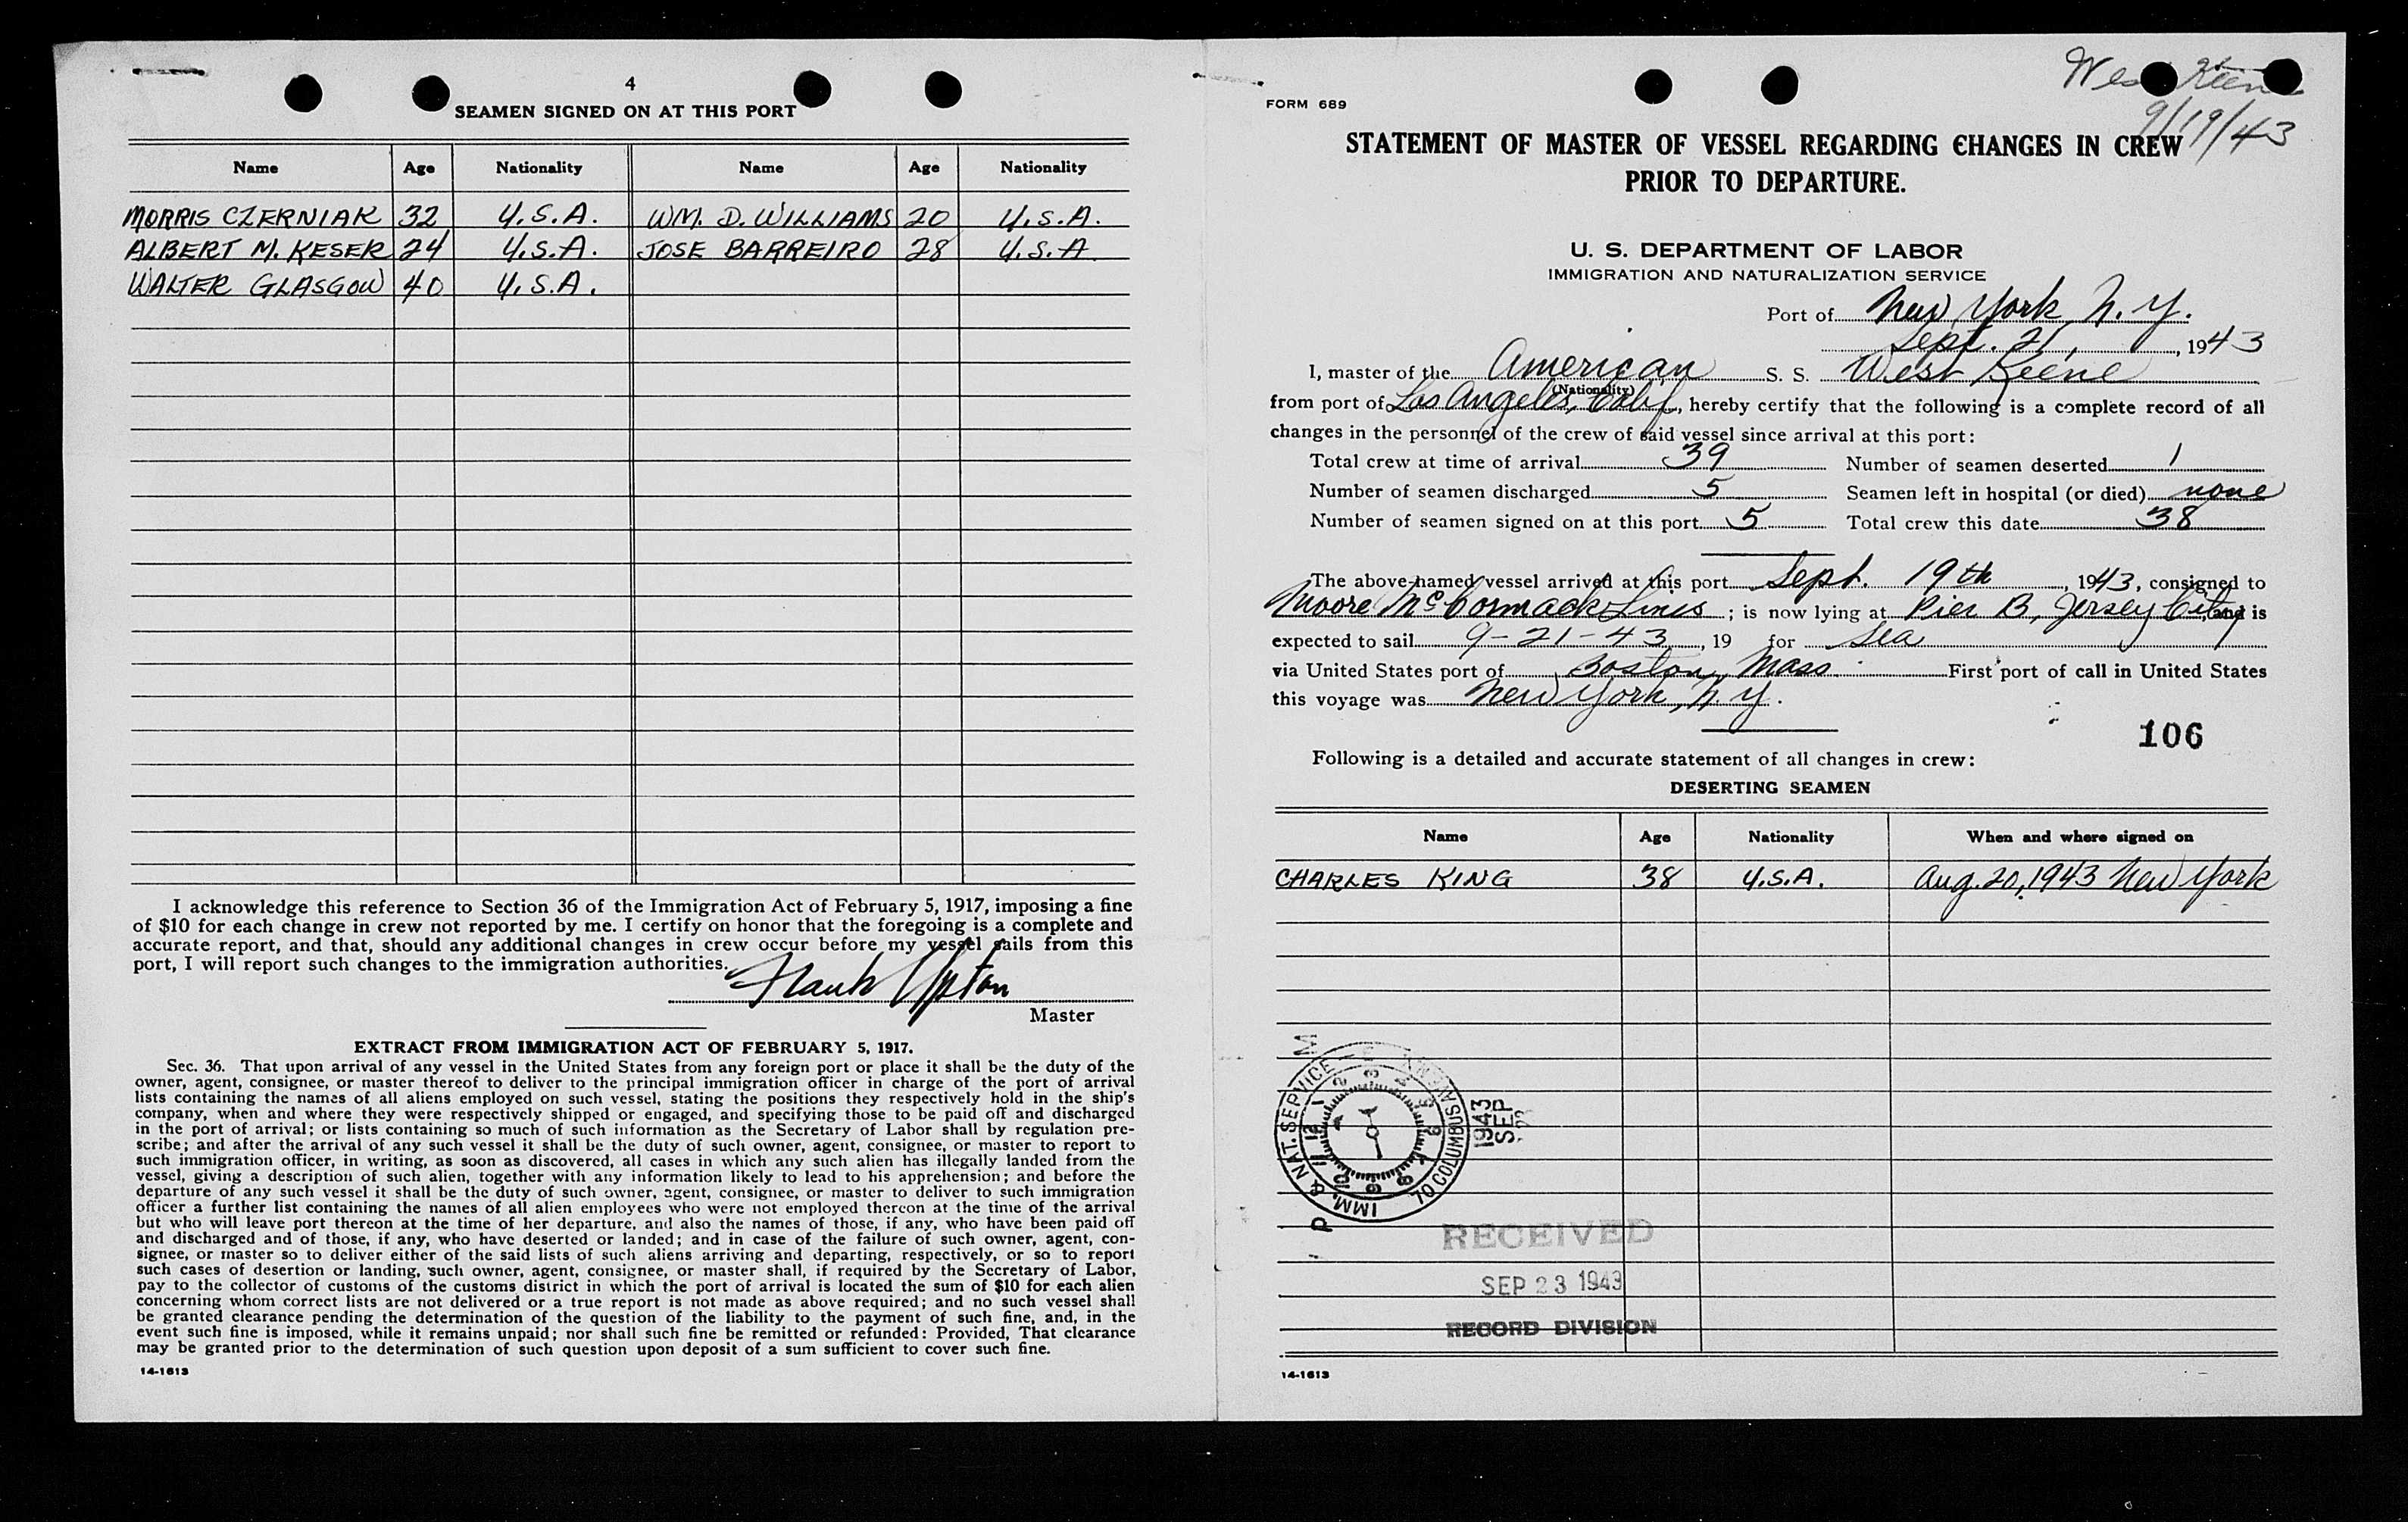 4
SEAMEN SIGNED ON AT THIS PORT
Name Age Nationality Name Age Nationality
MORRIS CZERNIAK 32 U.S.A. WM. D. WILLIAMS 20 U.S.A.
ALBERT M. KESER 24 U.S.A. JOSE BARREIRO 28 U.S.A
WALTER GLASGOW 40 U.S.A.
I acknowledge this reference to Section 36 of the Immigration Act of February 5, 1917, imposing a fine
of $10 for each change in crew not reported by me. I certify on honor that the foregoing is a complete and
accurate report, and that, should any additional changes in crew occur before my vessel sails from this
port, I will report such changes to the immigration authorities.
Frank Upton
Master
EXTRACT FROM IMMIGRATION ACT OF FEBRUARY 5, 1917.
Sec. 36. That upon arrival of any vessel in the United States from any foreign port or place it shall be the duty of the
owner, agent, consignee, or master thereof to deliver to the principal immigration officer in charge of the port of arrival
lists containing the names of all aliens employed on such vessel, stating the positions they respectively hold in the ship's
company, when and where they were respectively shipped or engaged, and specifying those to be paid off and discharged
in the port of arrival; or lists containing so much of such information as the Secretary of Labor shall by regulation pre-
scribe; and after the arrival of any such vessel it shall be the duty of such owner, agent, consignee, or master to report to
such immigration officer, in writing, as soon as discovered, all cases in which any such alien has illegally landed from the
vessel, giving a description of such alien, together with any information likely to lead to his apprehension; and before the
departure of any such vessel it shall be the duty of such owner, agent, consignee, or master to deliver to such immigration
officer a further list containing the names of all alien employees who were not employed thereon at the time of the arrival
but who will leave port thereon at the time of her departure, and also the names of those, if any, who have been paid off
and discharged and of those, if any, who have deserted or landed; and in case of the failure of such owner, agent, con-
signee, or master so to deliver either of the said lists of such aliens arriving and departing, respectively, or so to report
such cases of desertion or landing, such owner, agent, consignee, or master shall, if required by the Secretary of Labor,
pay to the collector of customs of the customs district in which the port of arrival is located the sum of $10 for each alien
concerning whom correct lists are not delivered or a true report is not made as above required; and no such vessel shall
be granted clearance pending the determination of the question of the liability to the payment of such fine, and, in the
event such fine is imposed, while it remains unpaid; nor shall such fine be remitted or refunded: Provided, That clearance
may be granted prior to the determination of such question upon deposit of a sum sufficient to cover such fine.
14-1613
West Keene
9/19/43
FORM 689
STATEMENT OF MASTER OF VESSEL REGARDING CHANGES IN CREW
PRIOR TO DEPARTURE.
U. S. DEPARTMENT OF LABOR
IMMIGRATION AND NATURALIZATION SERVICE
Port of New York, N. Y.
Sept. 21, 1943
I, master of the American S. S. West Keene
(Nationality)
from port of Los Angeles, Calif., hereby certify that the following is a complete record of all
changes in the personnel of the crew of said vessel since arrival at this port:
Total crew at time of arrival 39 Number of seamen deserted 1
Number of seamen discharged 5 Seamen left in hospital (or died) none
Number of seamen signed on at this port 5 Total crew this date 38
The above-named vessel arrived at this port Sept. 19th, 1943, consigned to
Moore McCormack Lines; is now lying at Pier B, Jersey City, and is
expected to sail 9-21-43, 19 for sea
via United States port of Boston, Mass. First port of call in United States
this voyage was New York, N. Y.
106
Following is a detailed and accurate statement of all changes in crew:
DESERTING SEAMEN
Name Age Nationality When and where signed on
CHARLES KING 38 U.S.A. Aug. 20, 1943 New York
IMM. & NAT. SERVICE
70 COLUMBUS AV. N.Y.
1943
SEP
M
P
RECEIVED
SEP 23 1943
RECORD DIVISION
14-1613